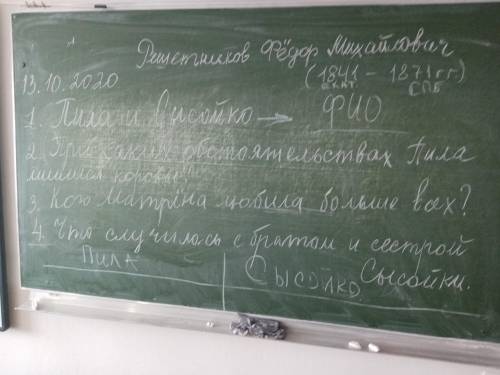 Решетников Фёдор Михайлович
13.10.2020
(1841 - 1871 гг.)
СПб
1. Пила и Сысойко → ФИО
2. При каких обстоятельствах Пила
лишился коровы?
3. Кого Матрёна любила больше всех?
4. Что случилось с братом и сестрой
Сысойки.
Пила
Сысойко